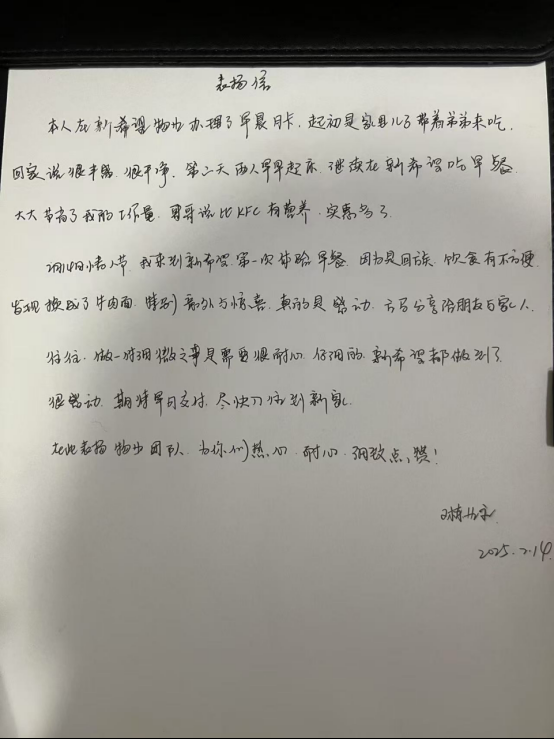 表扬信
本人在新希望物业办理了早晨月卡，起初是家里儿子带着弟弟来吃，
回家说很丰盛．很干净．第二天两人早早起床．继续在新希望吃早餐．
大大节省了我的工作量．哥哥说比KFC有营养．实惠多了．
2月14日情人节．我来到新希望．第一次体验早餐．因为是回族．饮食有不方便．
发现换成了牛肉面．特别意外与惊喜．真的是感动．立马分享给朋友与家人．
往往．做一对细微之事是需要很耐心．仔细的．新希望都做到了．
很感动．期待早日交付．尽快入住到新家．
在此表扬物业团队．为你们热心．耐心．细致点赞！
2025.2.14